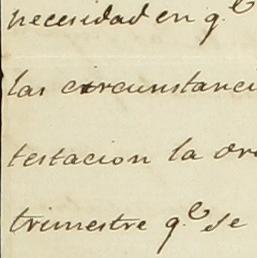 necesidad en q.e
las circunstanci
testacion la ord
trimestre q.e se